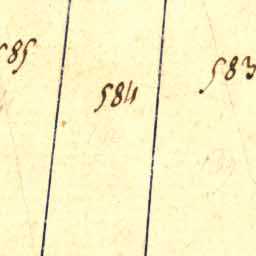 585
584
583